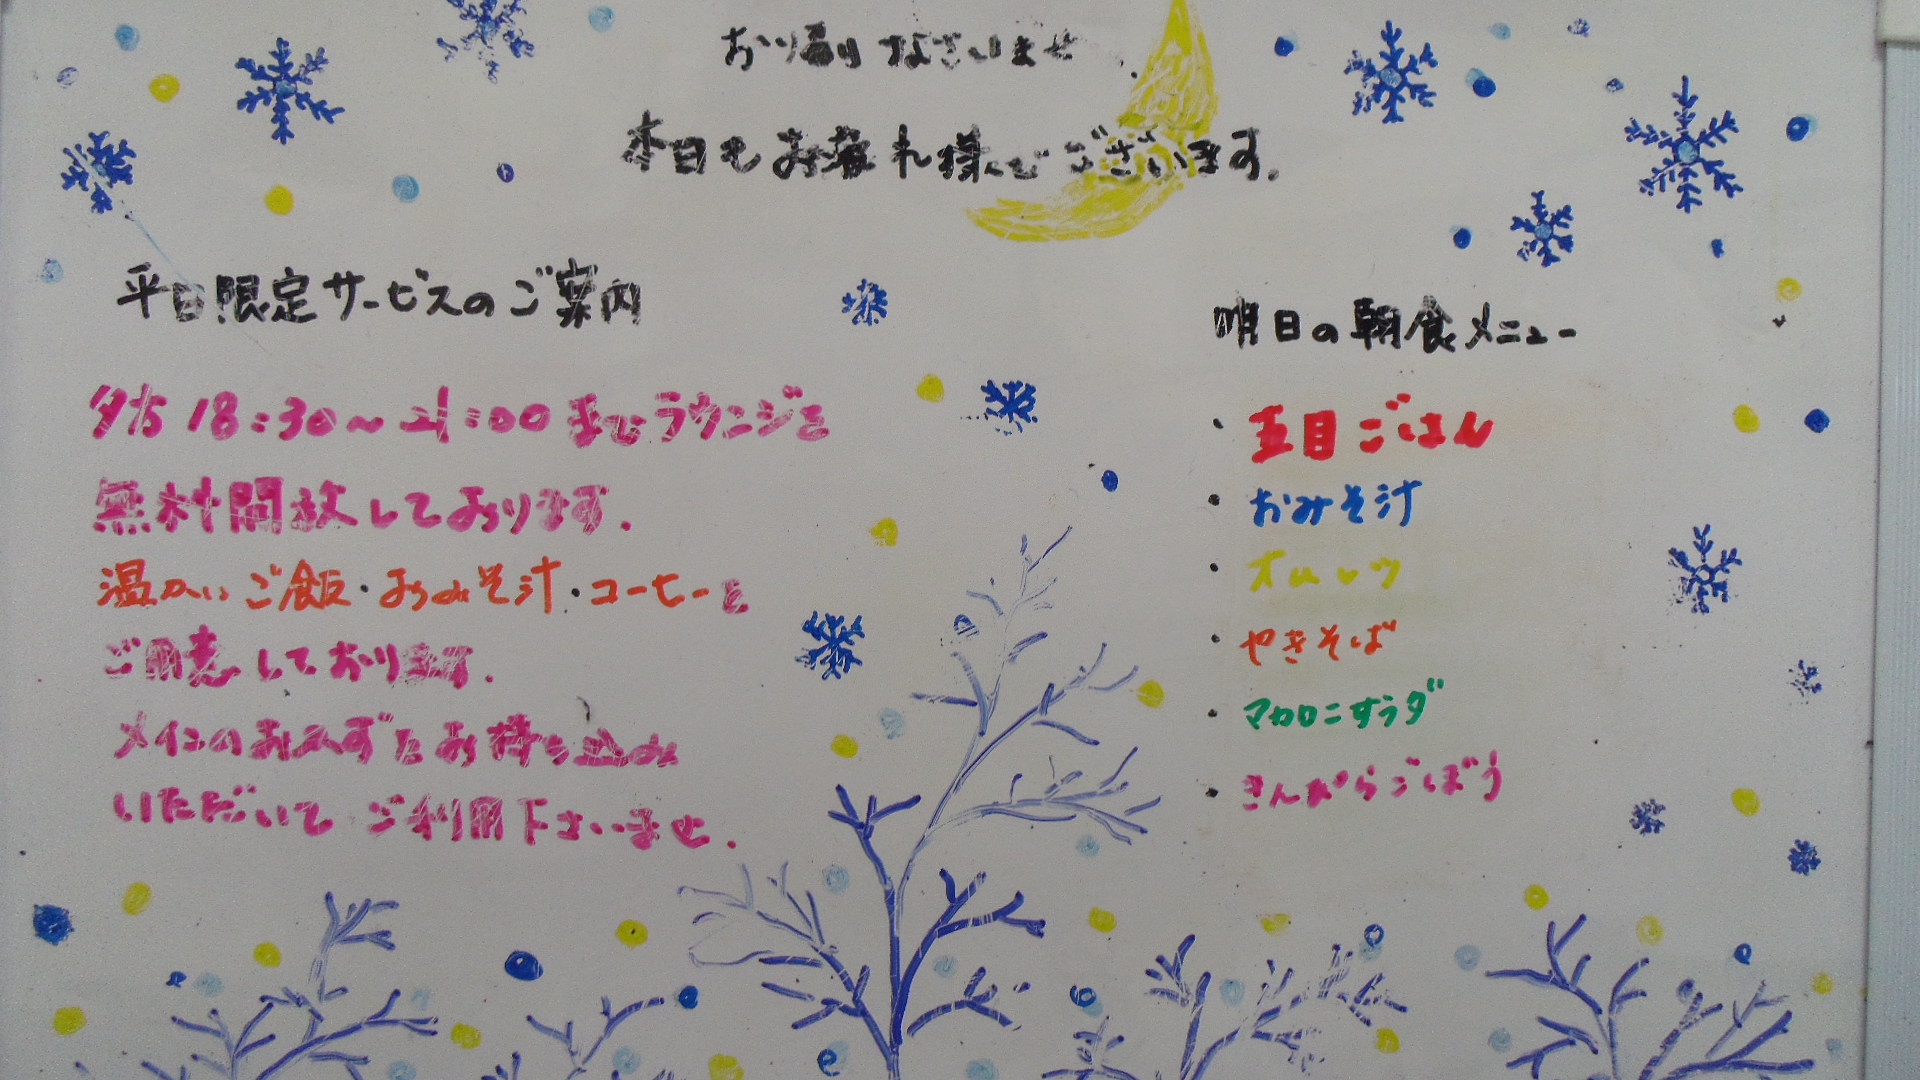 お帰りなさいませ
本日もお疲れ様でございます.
平日限定サービスのご案内
夕方 18:30～21:00までラウンジを
無料開放しております.
温かいご飯・おみそ汁・コーヒーを
ご用意しております.
メインのおかずをお持ち込み
いただいて ご利用下さいませ.
明日の朝食メニュー
・五目ごはん
・おみそ汁
・オムレツ
・やきそば
・マカロニサラダ
・きんぴらごぼう